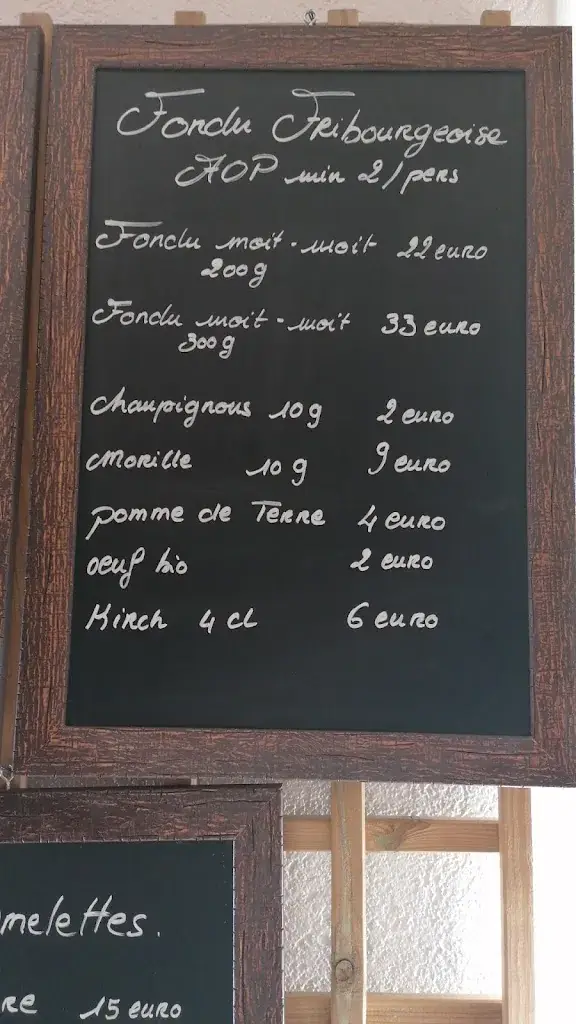 Fondu Fribourgeoise
AOP min 2/pers
Fondu moit-moit 22 euro
200g
Fondu moit-moit 33 euro
300g
Champignous 10g 2 euro
Morille 10g 9 euro
pomme de Terre 4 euro
oeuf bio 2 euro
Kirch 4 cl 6 euro
melettes.
RE 15 euro